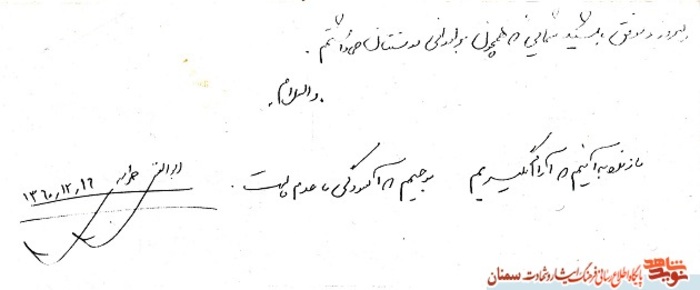 پیروز و موفق باشید شمائی که همچون برادرانی دوستتان می‌داشتم.
والسلام.
ما زنده به آنیم که آرام نگیریم موجیم که آسودگی ما عدم ماست.
ابوالفضل
۱۳۶۰,۱۲,۱۶
نوید شاهد
پایگاه اطلاع رسانی فرهنگ ایثار و شهادت سمنان